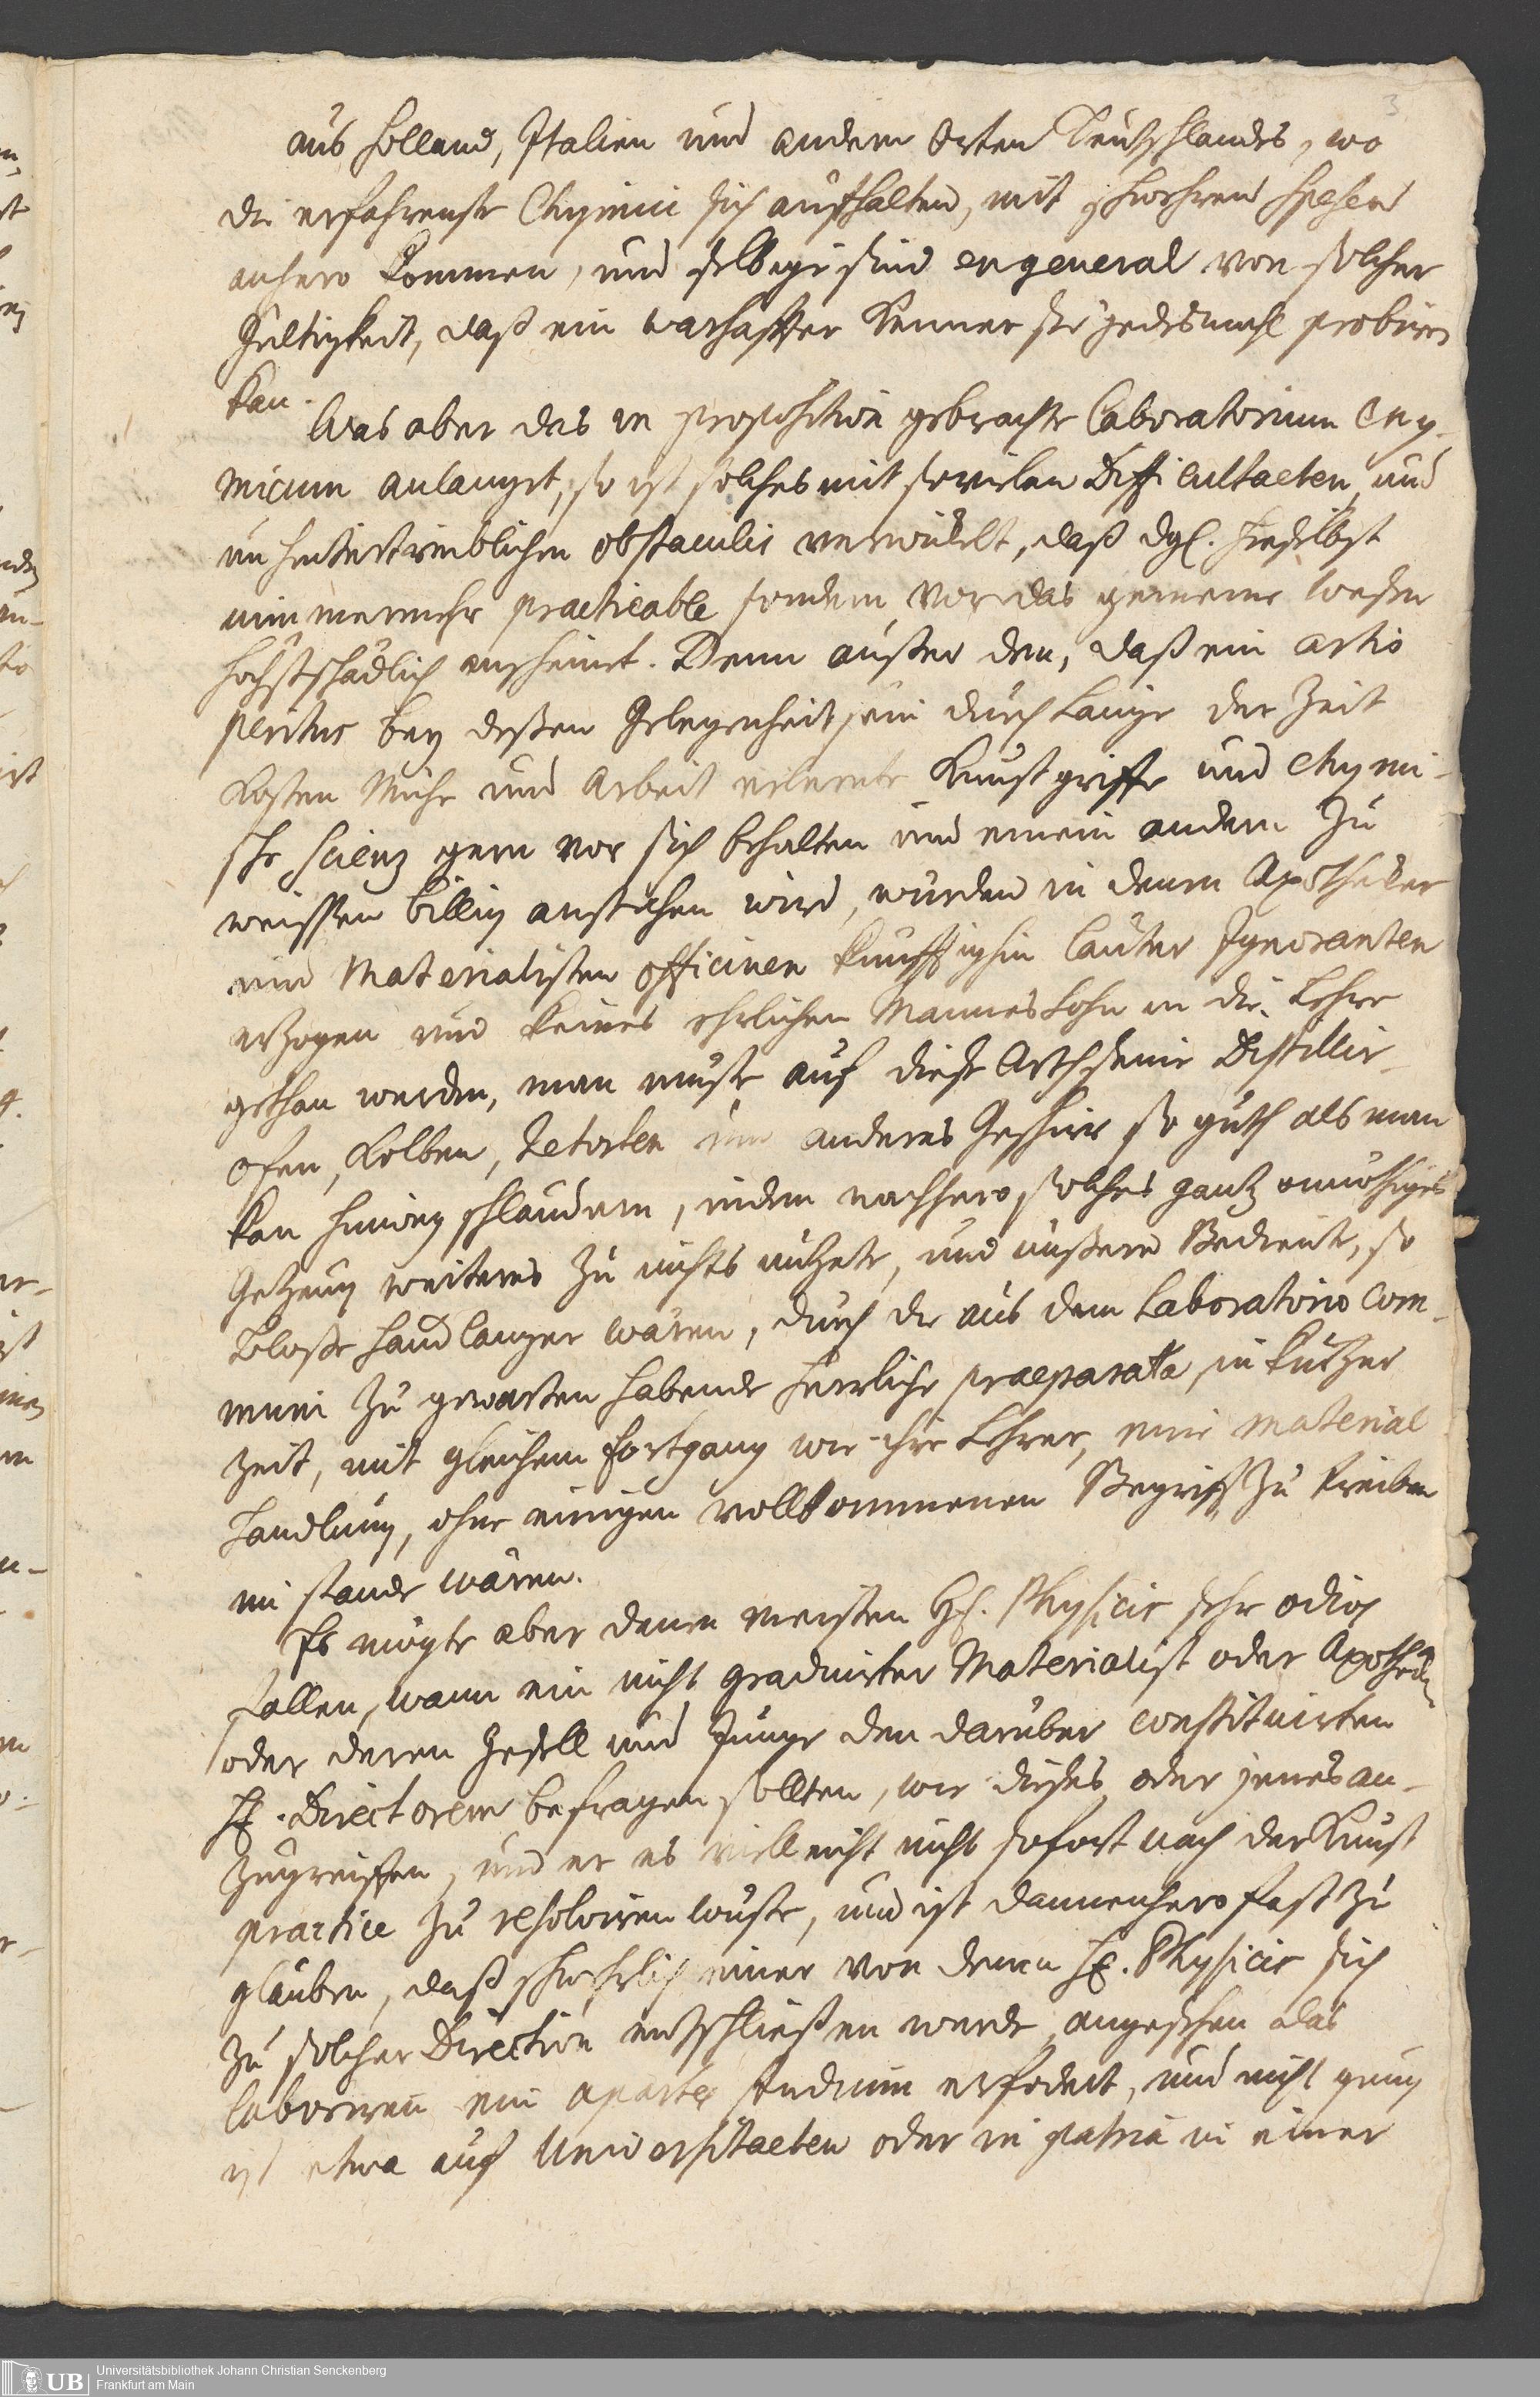 3
aus Holland, Italien und andern Orten Teutschlandes, wo
die erfahrenste Chymici sich aufhalten, mit schwehren Spesen
anhero kommen, und selbige sind en general von solcher
Gültigkeit, daß ein warhaffter Kenner sie jedesmahl probiren
kan.
Was aber das in proposition gebrachte Laboratorium Chy-
micum anlanget, so ist solches mit sovielen Difficultaeten und
unhintertreiblichen obstaculis verwickelt, daß dgl. hieselbst
nimmermehr practicable sondern vor das gemeine Wesen
höchstschädlich erscheinet. Denn außer den, daß ein artis
peritus bey deßen Gelegenheit sein durch Länge der Zeit
Kosten Mühe und Arbeit erlernte Kunstgriffe und Chymi-
sche Scienz gern vor sich behalten und einem andern zu
weissen billig anstehen wird, würden in denen Apothecker
und Materialisten officinen künfftighin lauter Ignoranten
erzogen und keines ehrlichen Mannes Sohn in die Lehre
gethan werden, man müste auf diese Arth seine Distillir-
ofen, Kolben, Retorten und anderes Geschirr so guth als man
kan hinweg schlaudern, indem nachhero solches gantz
Gezeug weiters zu nichts nützete, und unßere Bediente, so
bloße Handlanger wären, durch die aus dem Laboratorio com-
muni zu gewarten habende herrliche praeparata, in kutzer
Zeit, mit gleichem Fortgang wie ihre Lehrer, eine Material
Handlung, ohne einigen vollkommenen Begriff zu treiben
im stande wären.
Es mögte aber denen meisten HE. Physicis sehr odios
fallen, wann ein nicht graduirter Materialist oder Apothecker
oder deren Gesell und Junge den darüber constituirten
HE. Directorem befragen sollten, wie dieses oder jenes an-
zugreiffen, und er es villeicht nicht sofort nach der Kunst
practice zu resolviren wüste, und ist dannenhero fast zu
glauben, daß schwehrlich einer von denen HE. Physicis sich
zu solcher Direction entschließen werde, angesehen das
laboriren ein apartes studium erfodert, und nicht genug
ist etwa auf Universitaeten oder in patria in einer
UB
Universitätsbibliothek Johann Christian Senckenberg
Frankfurt am Main